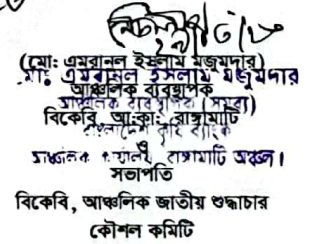 (মো: এমরানুল ইসলাম মজুমদার)
মোঃ এমরানুল ইসলাম মজুমদার
আঞ্চলিক ব্যবস্থাপক
আঞ্চলিক ব্যবস্থাপক
বিকেবি, আ:কা: রাঙ্গামাটি
বাংলাদেশ কৃষি ব্যাংক
ও
আঞ্চলিক কার্যালয়, রাঙ্গামাটি অঞ্চল।
সভাপতি
বিকেবি, আঞ্চলিক জাতীয় শুদ্ধাচার
কৌশল কমিটি